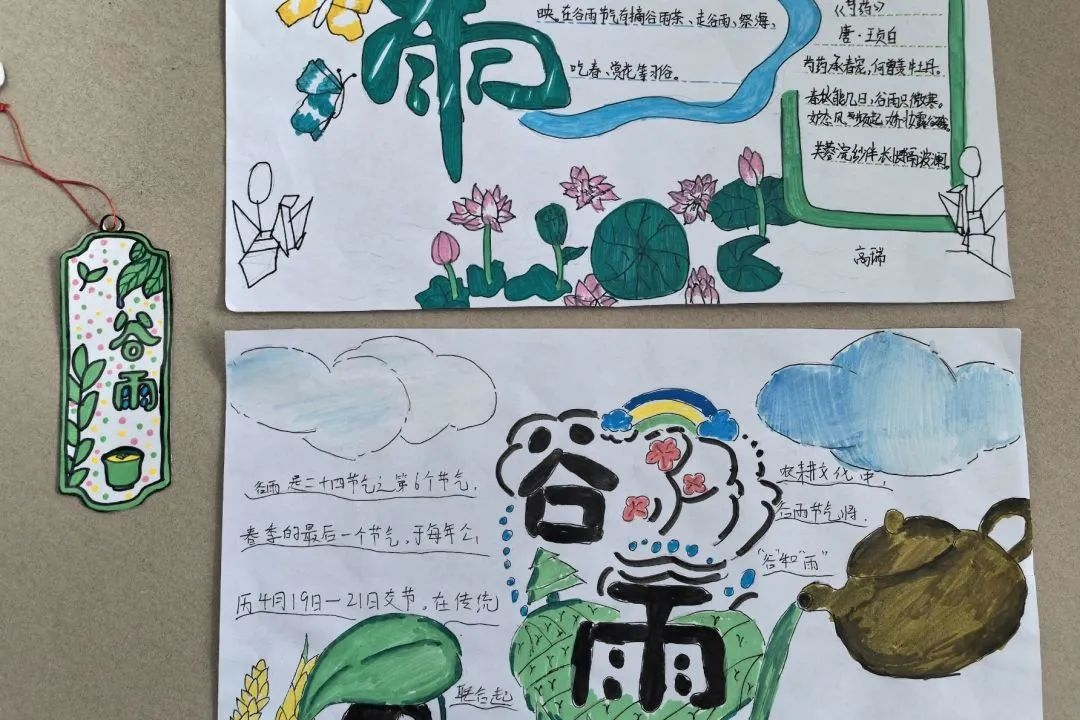 雨
映。在谷雨节气有摘谷雨茶、走谷雨、祭海、
吃春、赏花等习俗。
《芍药》
唐·王贞白
芍药承春宠，何曾羡牡丹。
春秋能几日，谷雨只微寒。
高瑞
谷雨
谷雨
谷雨是二十四节气之第6个节气，
春季的最后一个节气，于每年公
历4月19日-21日交节，在传统
农耕文化中，
谷雨节气将
"谷"和"雨"
联合起